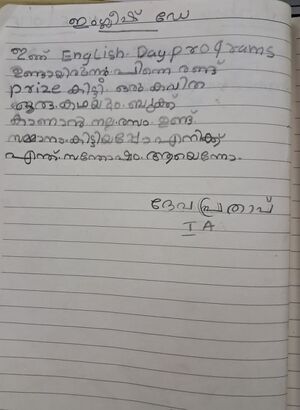 ഇംഗ്ലീഷ് ഡേ
ഇന്ന് English Day programs
ഉണ്ടായിരുന്നു പിന്നെ രണ്ട്
prize കിട്ടി ഒരു കവിത
ഒരു കഥയും ബുക്ക്
കാണാനു നല്ല രസം ഉണ്ട്
സമ്മാനം കിട്ടിയപ്പോ എനിക്ക്
എന്ത് സന്തോഷം ആയെന്നോ.
ദേവപ്രതാപ്
I A